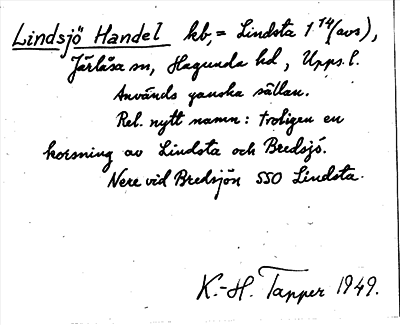 Lindsjö Handel kb, = Lindsta 1¹⁴ (avs),
Järlåsa sn, Hagunda hd, Upps. l.
Används ganska sällan.
Rel. nytt namn: troligen en
korsning av Lindsta och Bredsjö.
Nere vid Bredsjön SSO Lindsta.
K.-H. Tapper 1949.